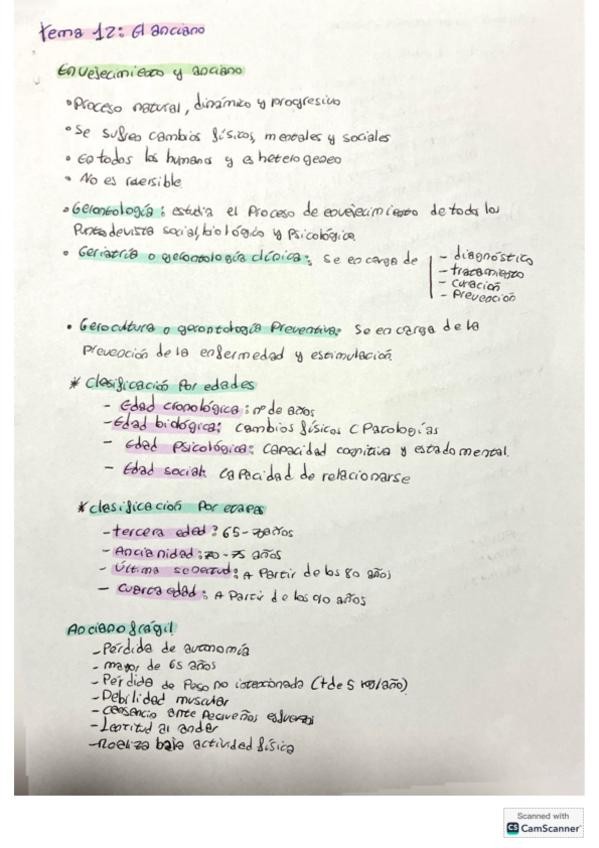 Tema 12: El anciano
Envejecimiento y anciano
• Proceso natural, dinámico y progresivo
• Se sufren cambios físicos, mentales y sociales
• En todos los humanos y es heterogeneo
• No es reversible
• Gerontología: estudia el proceso de envejecimiento de todos los
puntos de vista social, biológico y psicológico.
• Geriatría o gerontología clínica: se encarga de
- diagnóstico
- tratamiento
- curación
- prevención
• Gerocultura o gerontología preventiva: Se encarga de la
prevención de la enfermedad y estimulación.
* Clasificación por edades
- Edad cronológica: nº de años
- Edad biológica: cambios físicos C Patologías
- Edad psicológica: capacidad cognitiva y estado mental.
- Edad social: capacidad de relacionarse
* clasificación por etapas
- tercera edad: 65-70 años
- Ancianidad: 70-75 años
- Última senectud: A partir de los 80 años
- Cuarta edad: A partir de los 90 años
Anciano frágil
- Pérdida de autonomía
- mayor de 65 años
- Pérdida de peso no intencionada (+ de 5 kg/año)
- Debilidad muscular
- cansancio ante pequeños esfuerzos
- Lentitud al andar
- Realiza baja actividad física
Scanned with
CS CamScanner